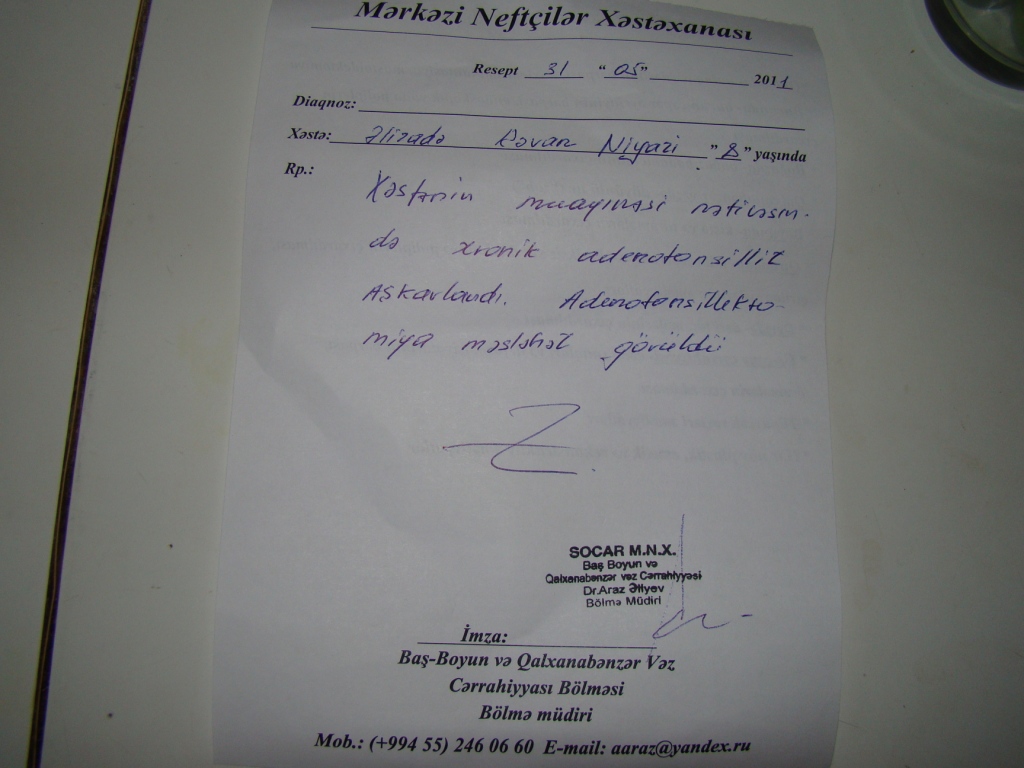 Mərkəzi Neftçilər Xəstəxanası
Resept 31 "05" 2011
Diaqnoz:
Xəstə: Əlizadə Rəvan Niyazi "8" yaşında
Rp.: Xəstənin muayinəsi nəticəsin-
də xronik adenotonsillit
aşkarlandı. Adenotonsillekto-
miya məsləhət görüldü
SOCAR M.N.X.
Baş Boyun və
Qalxanabənzər vəz Cərrahiyyəsi
Dr.Araz Əliyev
Bölmə Müdiri
İmza:
Baş-Boyun və Qalxanabənzər Vəz
Cərrahiyyası Bölməsi
Bölmə müdiri
Mob.: (+994 55) 246 06 60 E-mail: aaraz@yandex.ru